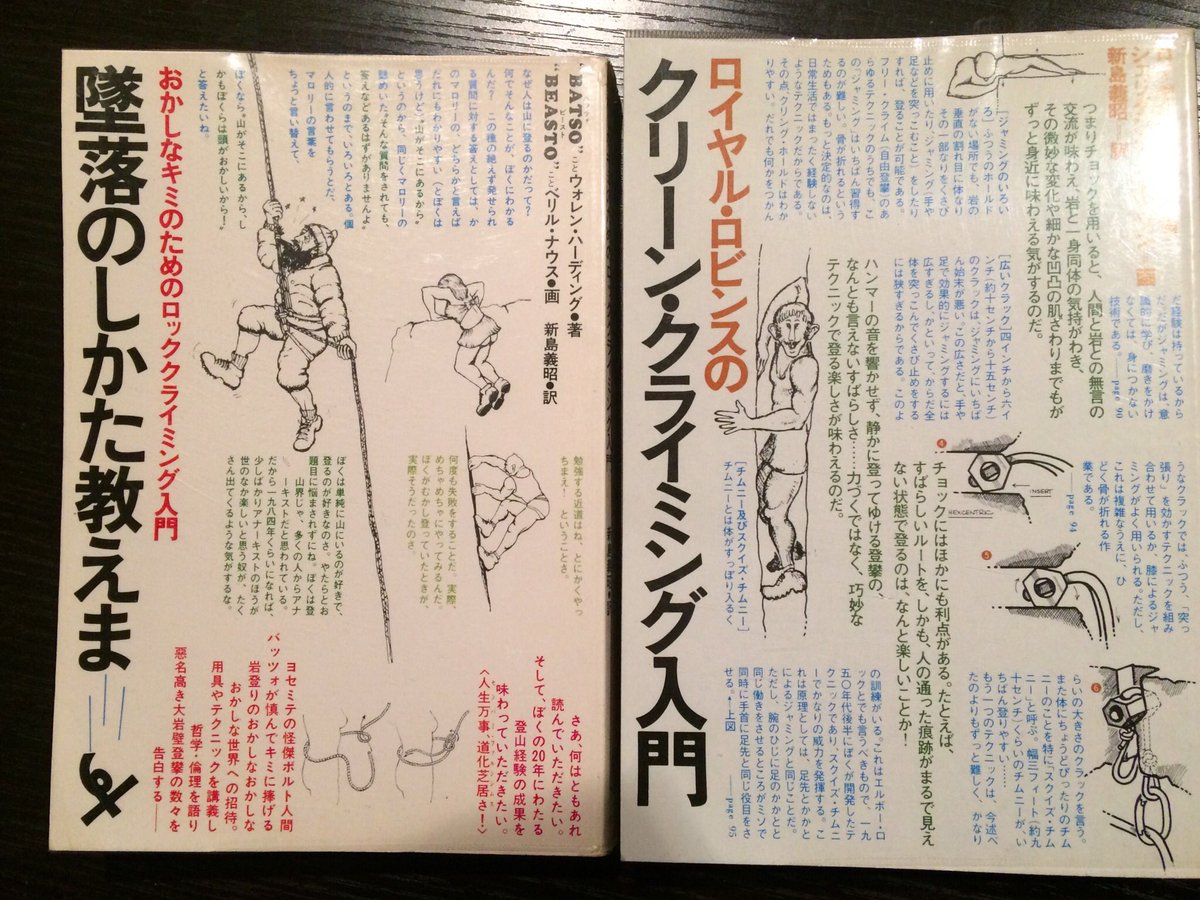 墜落のしかた教えま
おかしなキミのためのロッククライミング入門
"BATSO"ことウォレン・ハーディング●著
"BEASTO"ことベリル・ナウス●画
新島義昭●訳
なぜ人は山に登るのかだって？
何でそんなことが、ぼくにわかる
んだ？ この種の絶えず発せられ
る質問に対する答えとしては、か
のマロリーの、どちらかと言えば
だれにもわかりやすい（とぼくは
思うけど）"山がそこにあるから"
というのから、同じくマロリーの
聴めいた"そんな質問をされても、
答えなどあるはずがありませんよ"
というのまで、いろいろとある。個
人的に言わせてもらうとだ、
マロリーの言葉を
ちょっと言い替えて、
ぼくなら、"山がそこにあるから、し
かもぼくらは頭がおかしいから！"
と答えたいね。
勉強する近道はね、とにかくやっ
ちまえ！ ということさ。
何度も失敗をすることだ。実際、
めちゃめちゃにやってみるんだ。
ぼくがむかし登っていたときが、
実際そうだったのさ。
ぼくは単純に山にいるのが好きで、
登るのが好きなのさ。やたらとお
題目に悩まされずにね。ぼくは登
山界じゃ、多くの人からアナ
ーキストだと思われている。
だから一九八四年くらいになれば、
少しばかりアナーキストのほうが
世のなか楽しいと思う奴が、たく
さん出てくるような気がするな。
さあ、何はともあれ
読んでいただきたい。
そして、ぼくの20年にわたる
登山経験の成果を
味わっていただきたい。
〈人生万事、道化芝居さ！〉
ヨセミテの怪傑ボルト人間
バッツォが慎んでキミに捧げる
岩登りのおかしなおかしな
おかしな世界への招待。
用具やテクニックを講義し
哲学・倫理を語り
惡名高き大岩壁登攀の数々を
告白する──
ロイヤル・ロビンスの
クリーン・クライミング入門
新島義昭
つまりチョックを用いると、人間と岩との無言の
交流が味わえ、岩と一身同体の気持がわき、
その微妙な変化や細かな凹凸の肌ざわりまでもが
ずっと身近に味わえる気がするのだ。
「ジャミングのいろい
ろ」ふつうのホールド
がない場所でも、岩の
垂直の割れ目に体なり
その一部なりをくさび
止めに用いたり、ジャミング（手や
足などを突っこむこと）をしたり
すれば、登ることが可能である。
フリー・クライム（自由登攀）のあ
らゆるテクニックのうちでも、こ
の「ジャミング」はいちばん習得す
るのが難しい。骨が折れるという
ためもあるもっと決定的なのは、
日常生活ではまったく経験しない
ようなテクニックだからである。
その点、クリング・ホールドはわか
りやすい。だれでも何かをつかん
だ経験は持っているから
だ。だがジャミングは、意
識的に学び、磨きをかけ
なくては、身につかない
技術である。──page 90
［広いクラック］四インチから六イ
ンチ（約十センチから十五センチ）
のクラックは、ジャミングにいちば
ん始末が悪い。この広さだと、手や
足で効果的にジャミングするには
広すぎるし、かといって、からだ全
体を突っこんでくさび止めをする
には狭すぎるからである。このよ
うなクラックでは、ふつう、「突っ
張り」を効かすテクニックを組み
合わせて用いるか、膝によるジャ
ミングがよく用いられる。ただし、
これは複雑なうえに、ひ
どく骨が折れる作
業である。
──page 94
ハンマーの音を響かせず、静かに登ってゆける登攀の、
なんとも言えないすばらしさ……力づくではなく、巧妙な
テクニックで登る楽しさが味わえるのだ。
チョックにはほかにも利点がある。たとえば、
すばらしいルートを、しかも、人の通った痕跡がまるで見え
ない状態で登るのは、なんと楽しいことか！
4
INSERT
HEXCENTRIC
5
6
［チムニー及びスクイズ・チムニー］
チムニーとは体がすっぽり入るく
らいの大きさのクラックを言う。
また体にちょうどぴったりのチム
ニーのことを特に、"スクイズ・チム
ニー"と呼ぶ。幅三フィート（約九
十センチ）くらいのチムニーが、い
ちばん登りやすい……
もう一つのテクニックは、今述べ
たのよりもずっと難しく、かなり
の訓練がいる。これはエルボー・ロ
ックとでも言うべきもので、一九
五〇年代後半にぼくが開発したテ
クニックであり、スクイズ・チムニ
ーでかなりの威力を発揮する。こ
れは原理としては、足先とかかと
によるジャミングと同じことだ。
ただし、腕のひじに足のかかとと
同じ働きをさせるところがミソで
同時に手首に足先と同じ役目をさ
せる。▲上図
──page 95